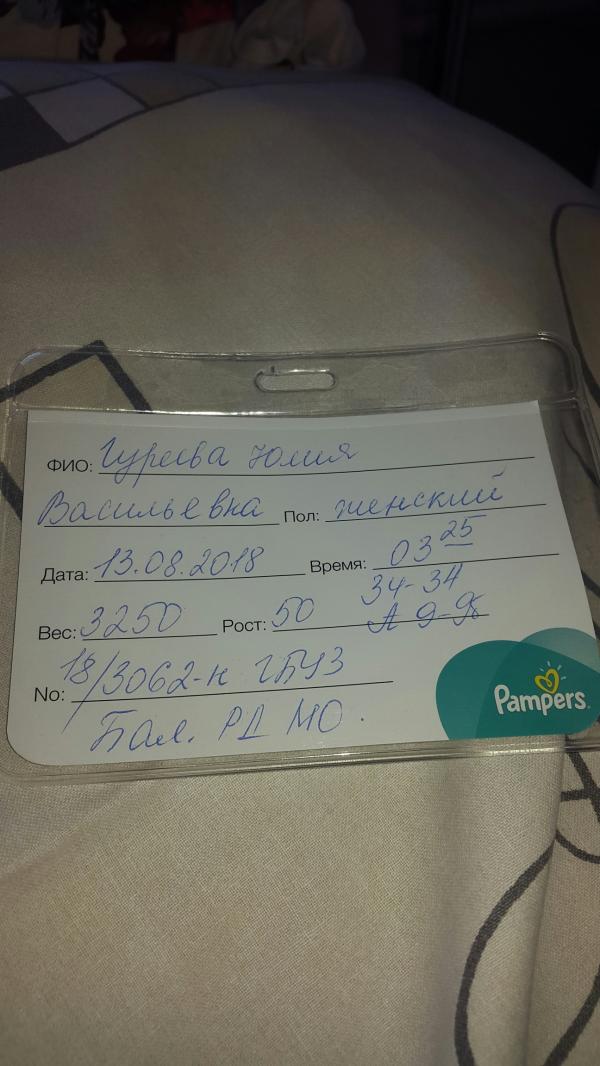 ФИО: Гуреева Юлия
Васильевна Пол: женский
Дата: 13.08.2018 Время: 03 25
Вес: 3250 Рост: 50 34-34
No: 18/3062-н ГБУЗ
Бал. РД МО.
Pampers